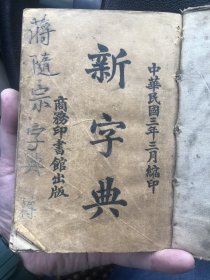 中華民國三年三月縮印
新字典
商務印書館出版
蔣隨宗字典